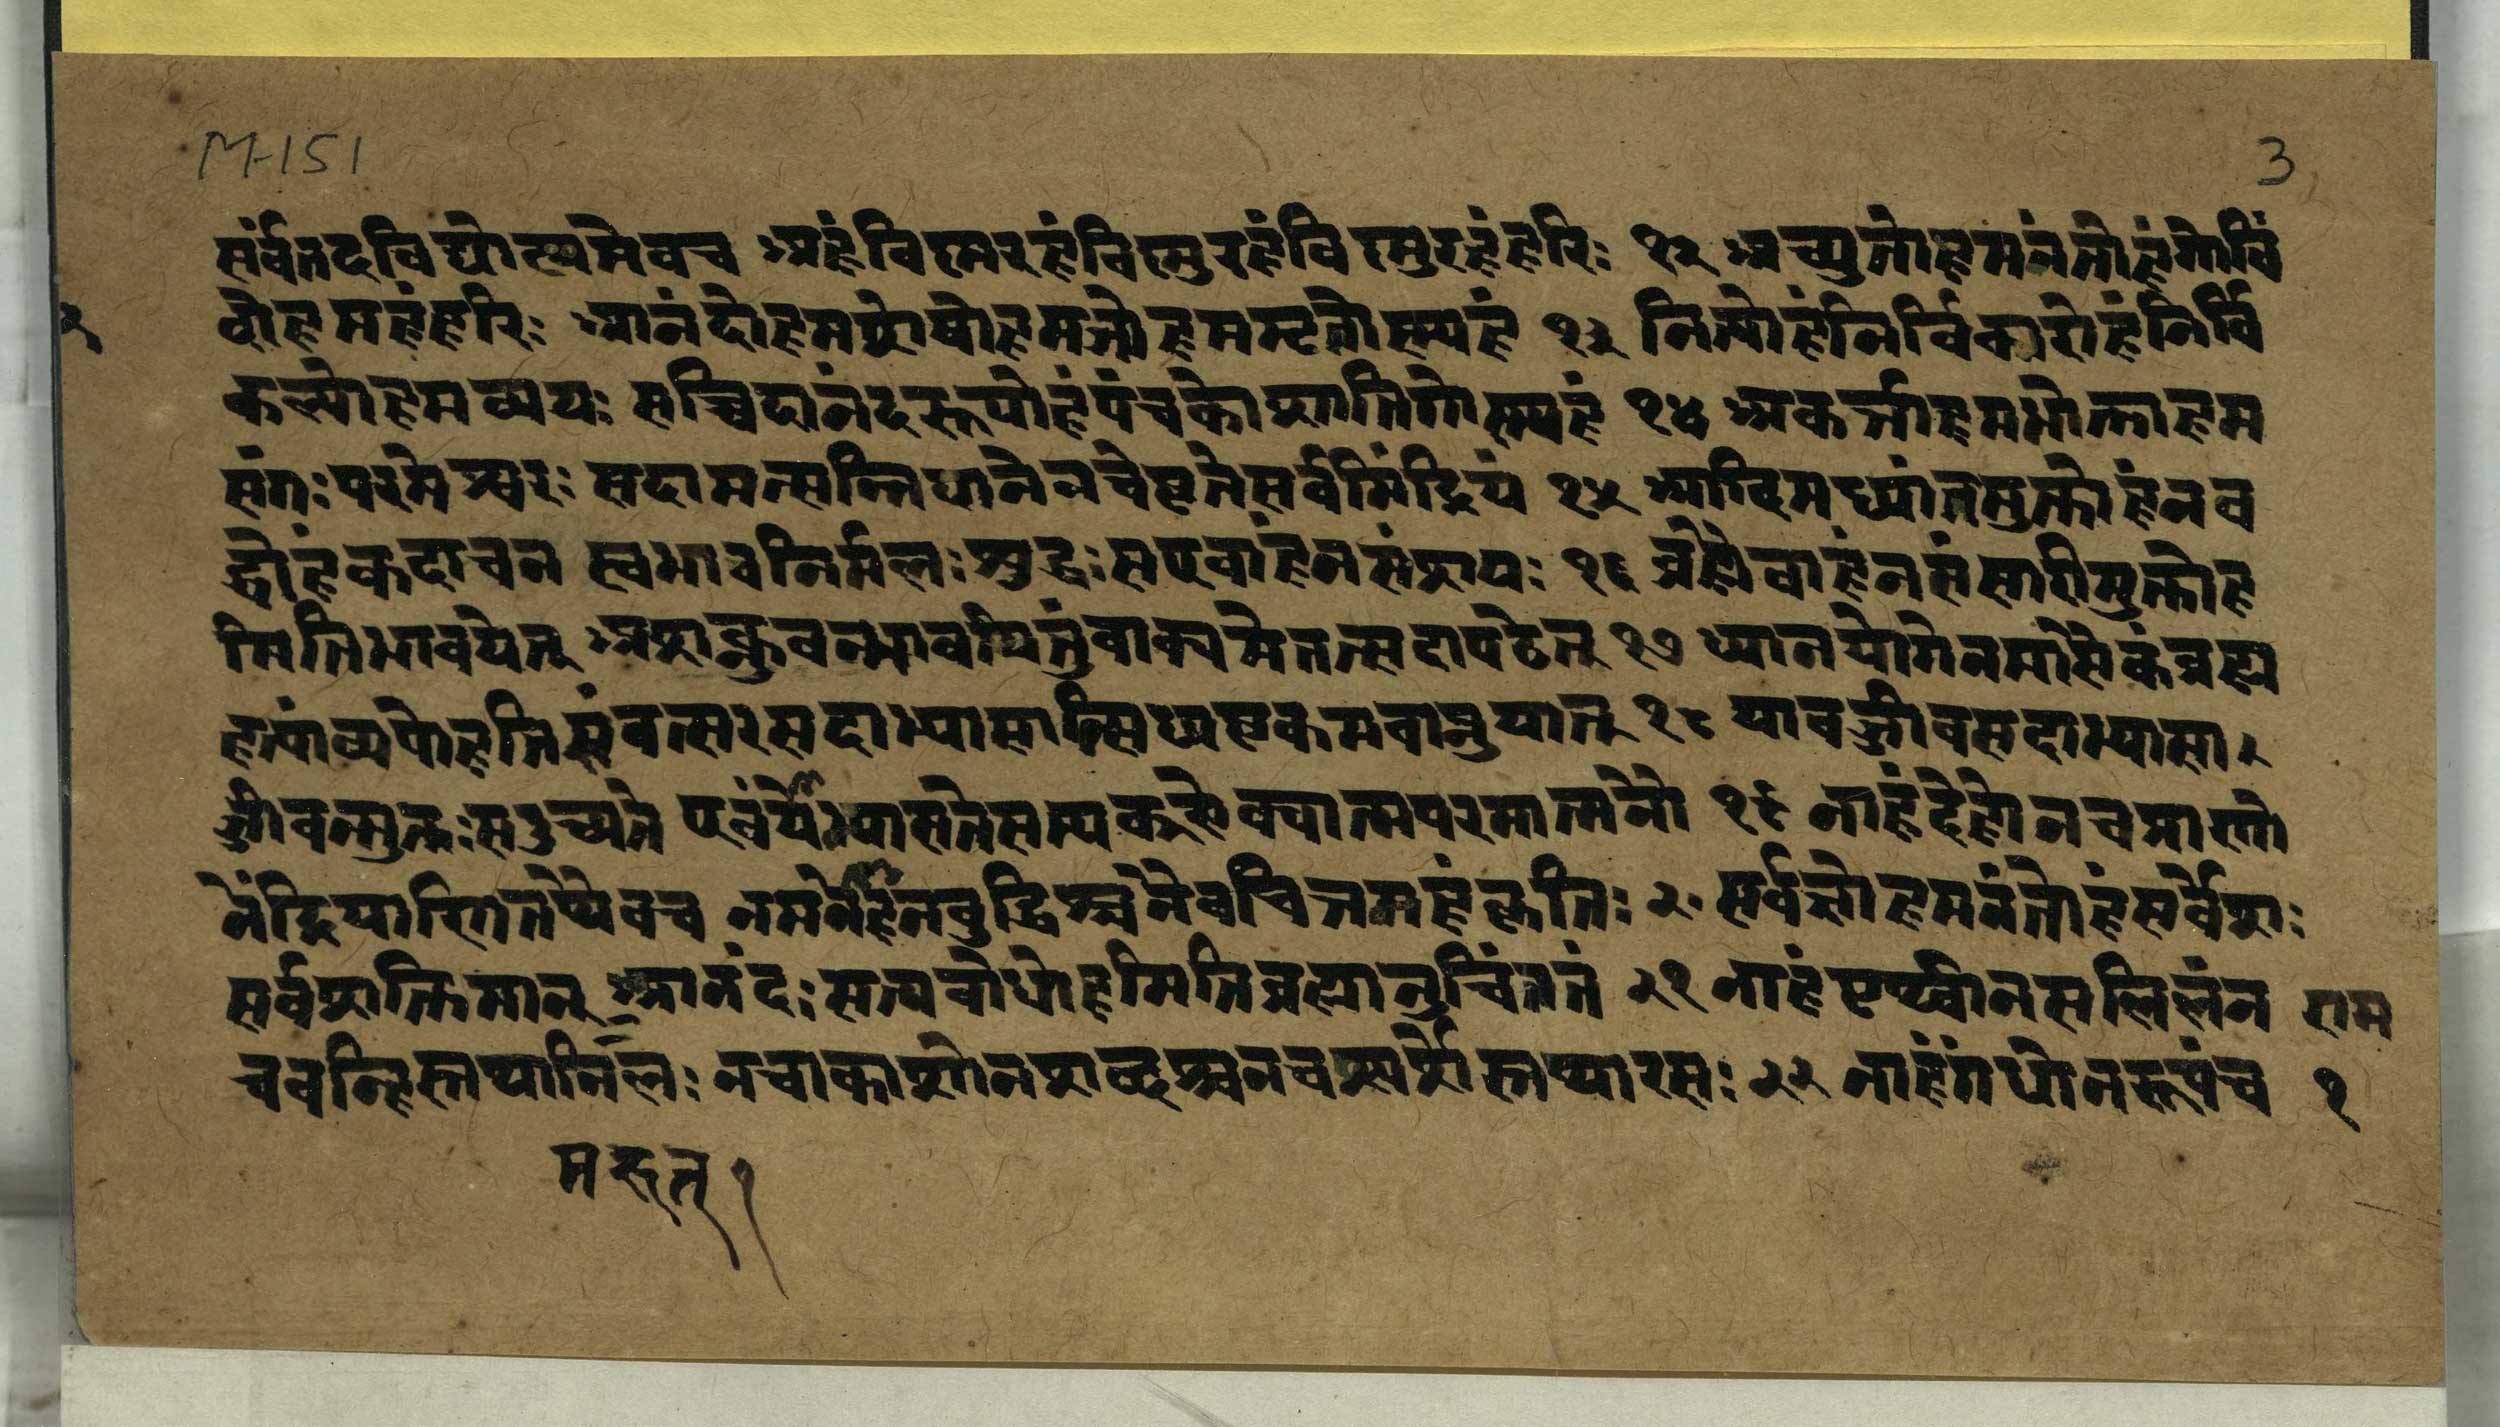 M-151
3
सर्वंतदविद्योत्थमेवच अहंविष्णुरहंविष्णुरहंविष्णुरहंहरिः १२ अच्युतोहमनंतोहंगोविं
दोहमहंहरिः आनंदोहमशेषोहमजोहममृतोस्म्यहं १३ नित्योहंनिर्विकारोहंनिर्वि
कल्पोहमव्ययः सच्चिदानंदरूपोहंपंचकोशातिगोस्म्यहं १४ अकर्त्ताहमभोक्ताहम
संगः परमेश्वरः सदामत्सन्निधानेनचेष्टतेसर्वमिंद्रियं १५ आदिमध्यांतमुक्तोहंनब
द्धोहंकदाचन स्वभावनिर्मलः शुद्धः सएवाहंनसंशयः १६ ब्रह्मैवाहंनसंसारीमुक्तोह
मितिभावयेत् अशक्नुवन्भावयितुंवाक्यमेतत्सदापठेत् १७ ध्यानयोगेनमासैकंब्रह्म
हत्यांव्यपोहति संवत्सरसदाभ्यासात्सिध्यष्टकमवाप्नुयात् १८ यावज्जीवसदाभ्यासा
ज्जीवन्मुक्तः सउच्यते एवंयोभ्यासतेसम्यक्ऐक्यात्मपरमात्मनो १९ नाहंदेहोनचप्राणो
नेंद्रियाणितथैवच नमनोहंनबुद्धिश्चनैवचित्तमहंकृतिः २० सर्वज्ञोहमनंतोहंसर्वेशः
सर्वशक्तिमान् आनंदः सत्यबोधोहमितिब्रह्मानुचिंतनं २१ नाहंपृथ्वीनसलिलंन
राम
चवह्निस्तथानिलः नचाकाशोनशब्दश्चनचस्पर्शस्तथारसः २२ नाहंगंधोनरूपंच
१
मरुत् १